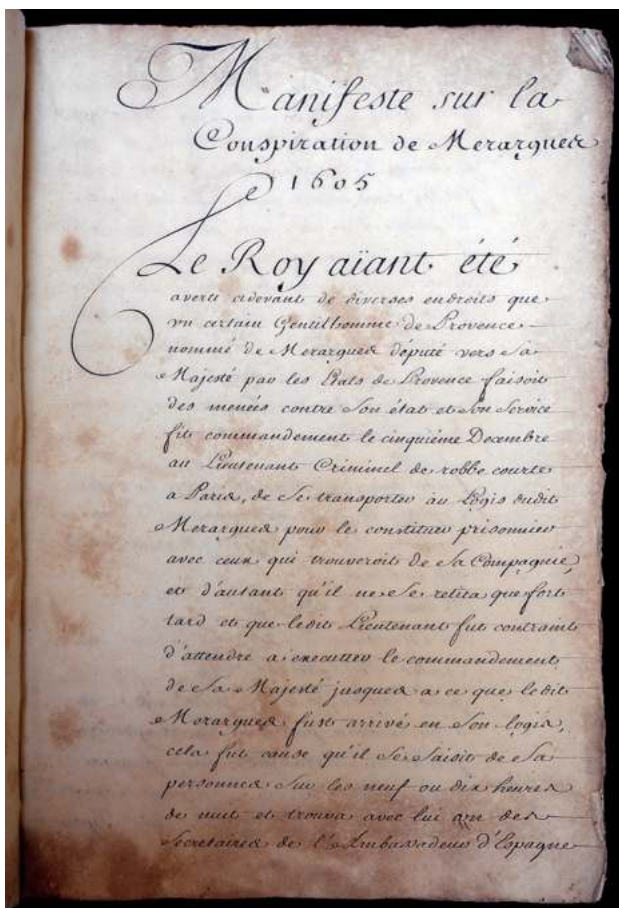 Manifeste sur la
Conspiration de Merargues
1605
Le Roy aïant été
averti cidevant de diverses endroits que
un certain Gentilhomme de Provence
nommé de Merargues député vers sa
Majesté par les Etats de Provence faisoit
des menées contre son état et son service
fit commandement le cinquiéme Decembre
au Lieutenant Criminel de robbe courte
a Paris, de se transporter au Logis dudit
Merargues pour le constituer prisonnier
avec ceux qui trouveroit de sa Compagnie,
et d'autant qu'il ne se retira que fort
tard et que ledit Lieutenant fut contraint
d'attendre a executter le commandement
de sa Majesté jusques a ce que ledit
Merargues fust arrivé en son logis,
cela fut cause qu'il se saisit de sa
personnes sur les neuf ou dix heures
de nuit et trouva avec lui un des
Secretaires de l'Ambassadeur d'Espagne